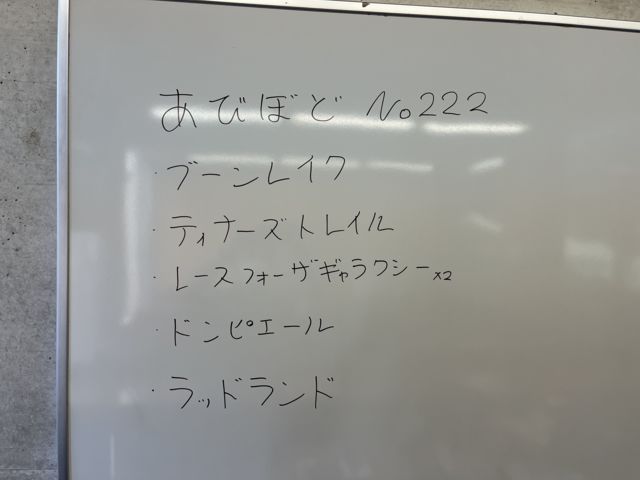 あびぼど No222
・ブーンレイク
・ティナーズトレイル
・レースフォーザギャラクシー x2
・ドンピエール
・ラッドランド